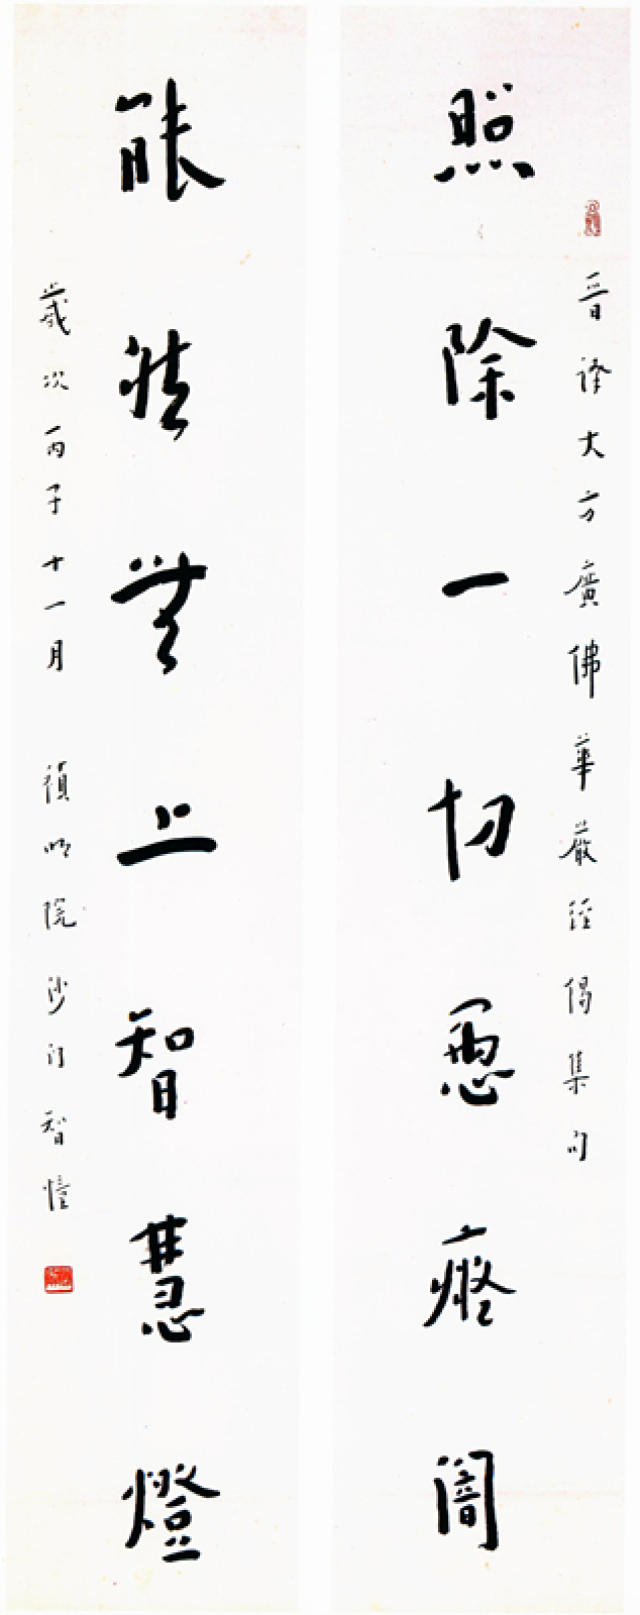 晉譯大方廣佛華嚴經偈集句
照除一切愚癡闇
能然無上智慧燈
歲次丙子十一月 禎明院沙門智